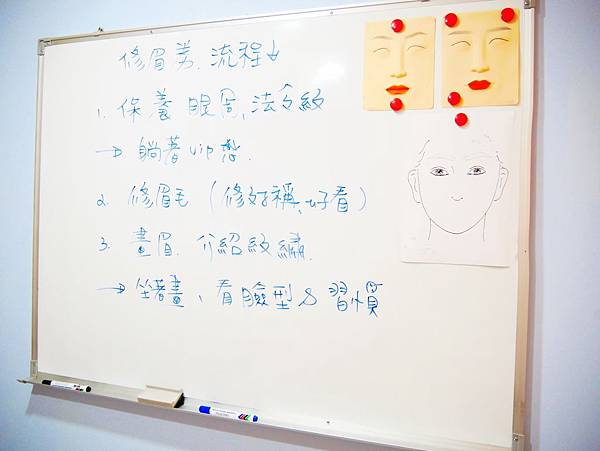 修眉美.流程↓
1. 保養眼周、法令紋
→ 躺著vip
2. 修眉毛(修好稱、好看)
3. 畫眉.介紹紋繡.
→ 坐著畫、看臉型&習慣